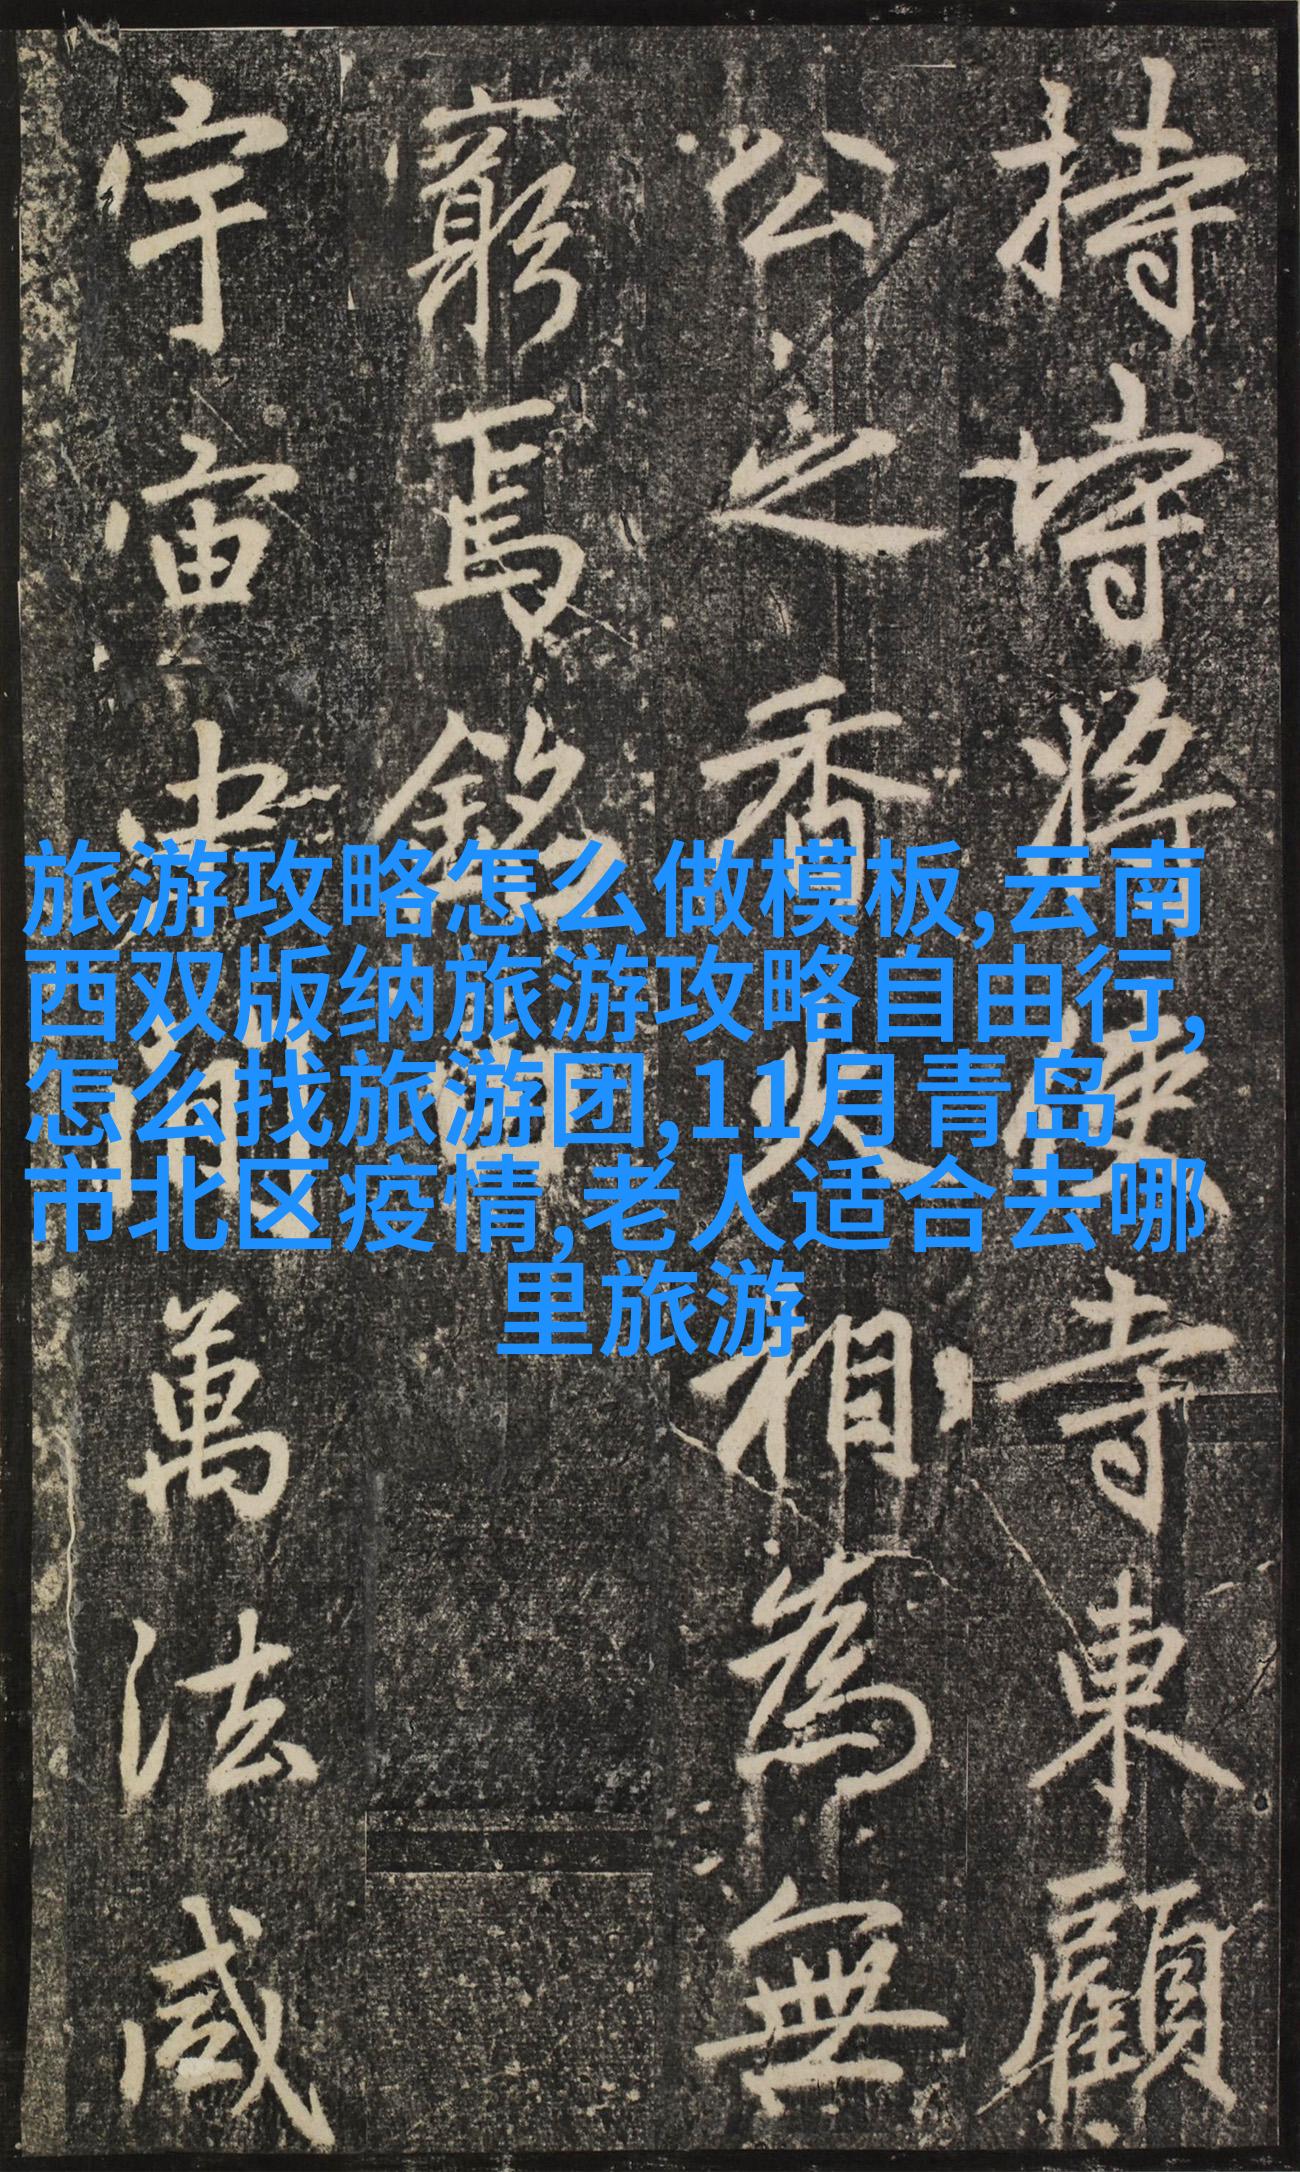 持将使寺東顧
公之香火相為無
窮焉銘曰
宇宙間萬法咸
旅游攻略怎么做模板,云南
西双版纳旅游攻略自由行,
怎么找旅游团,11月青岛
市北区疫情,老人适合去哪
里旅游